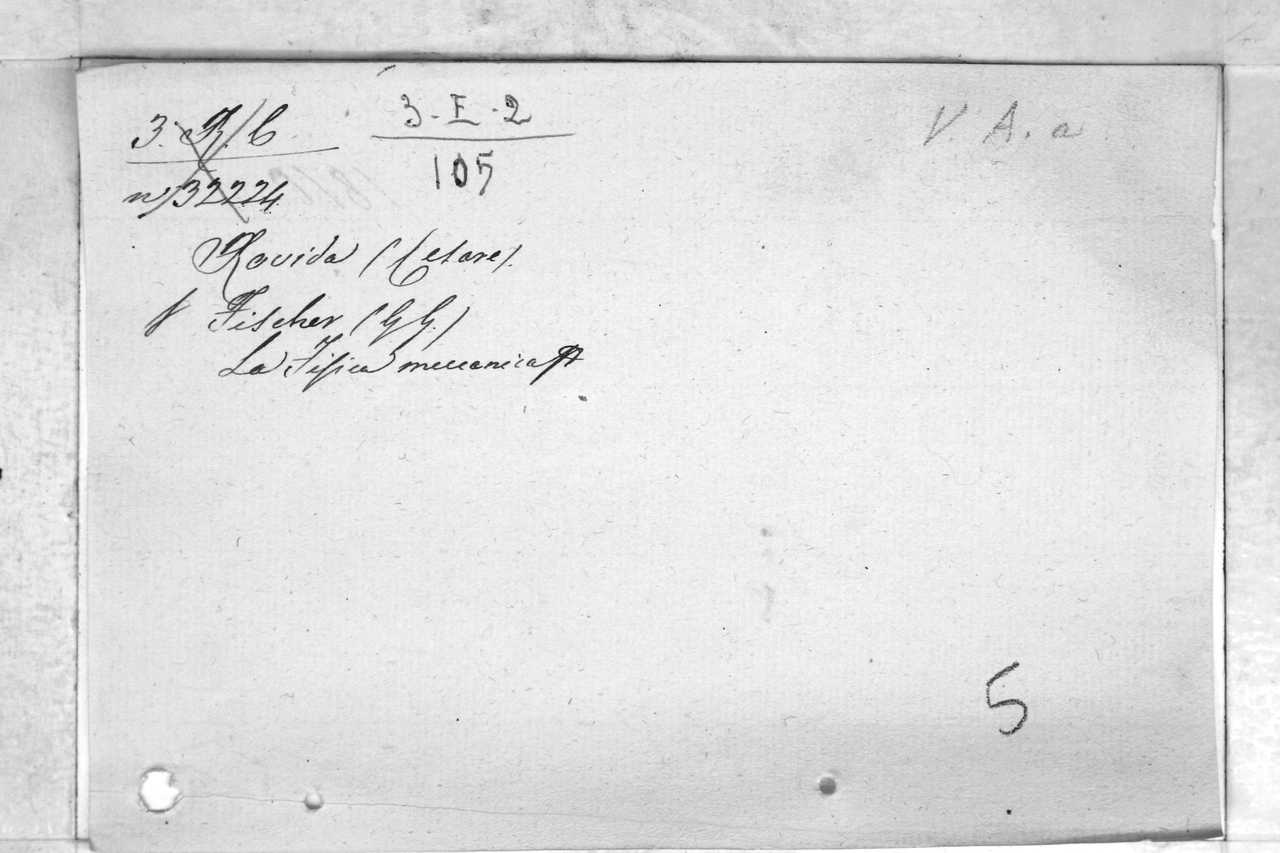 3. R/C
n) 32224
3-E-2
105
V A. a
Rovida (Cesare).
f Fischer (G G.)
La Fisica meccanica
5